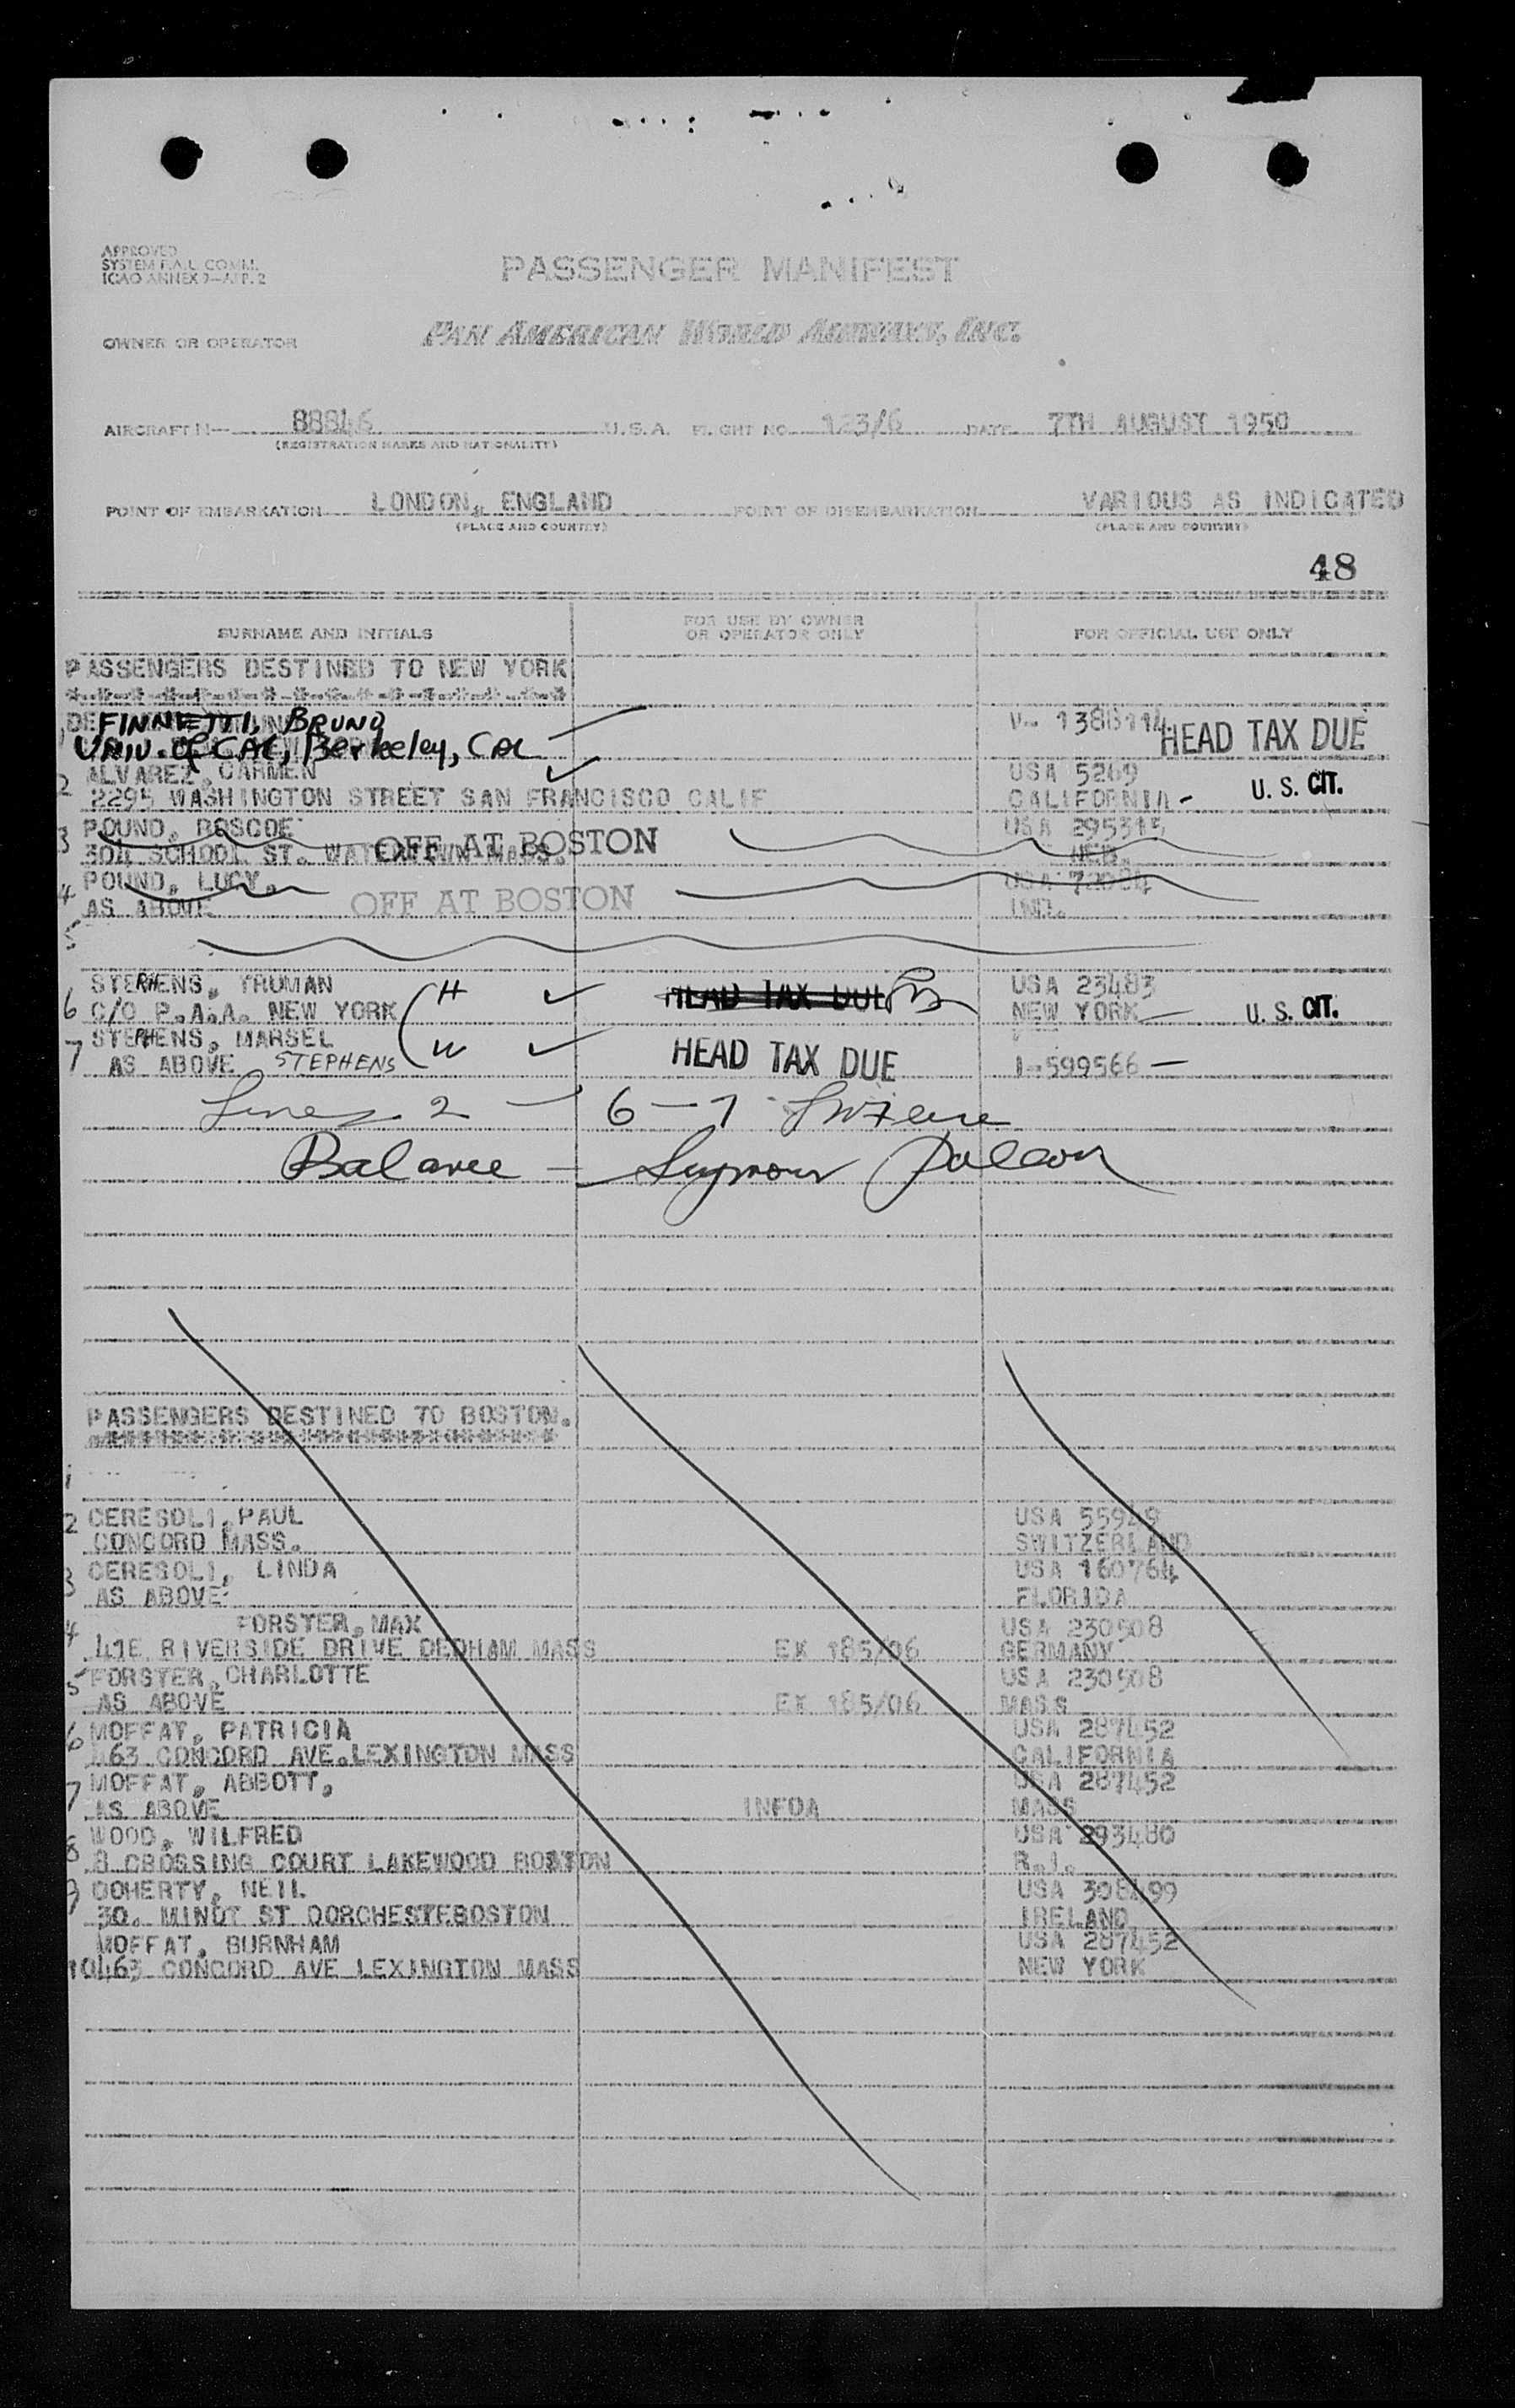 APPROVED
SYSTEM F.A.L. COMM.
ICAO ANNEX 9—APP. 2
PASSENGER MANIFEST
OWNER OR OPERATOR PAN AMERICAN WORLD AIRWAYS, INC.
AIRCRAFT N— 88846 U.S.A. FLIGHT NO. 123/6 DATE 7TH AUGUST 1950
(REGISTRATION MARKS AND NATIONALITY)
POINT OF EMBARKATION LONDON, ENGLAND POINT OF DISEMBARKATION VARIOUS AS INDICATED
(PLACE AND COUNTRY) (PLACE AND COUNTRY)
48
SURNAME AND INITIALS FOR USE BY OWNER OR OPERATOR ONLY FOR OFFICIAL USE ONLY
PASSENGERS DESTINED TO NEW YORK
DE FINNETTI, BRUNO V- 1388114 HEAD TAX DUE
UNIV. of CAL, Berkeley, Cal
2 ALVAREZ, CARMEN USA 5269
2295 WASHINGTON STREET SAN FRANCISCO CALIF CALIFORNIA - U. S. CIT.
3 POUND, ROSCOE USA 295315
304 SCHOOL ST. WATERTOWN MASS. OFF AT BOSTON NEB.
4 POUND, LUCY, USA 72084
AS ABOVE OFF AT BOSTON IND.
5
STEPHENS, TRUMAN H USA 23483
6 C/O P.A.A. NEW YORK HEAD TAX DUE NEW YORK U. S. CIT.
7 STEPHENS, MARSEL W HEAD TAX DUE
AS ABOVE STEPHENS I-599566 —
Lines 2 — 6 - 7
Balance — Seymour
PASSENGERS DESTINED TO BOSTON.
1
2 CERESOLI, PAUL USA 55949
CONCORD MASS. SWITZERLAND
3 CERESOLI, LINDA USA 160764
AS ABOVE FLORIDA
4 FORSTER, MAX USA 230908
41E RIVERSIDE DRIVE DEDHAM MASS EX 185/06 GERMANY
5 FORSTER, CHARLOTTE USA 230908
AS ABOVE EX 185/06 MASS
6 MOFFAT, PATRICIA USA 287452
463 CONCORD AVE. LEXINGTON MASS CALIFORNIA
7 MOFFAT, ABBOTT, USA 287452
AS ABOVE INFOA MASS
8 WOOD, WILFRED USA 293480
8 CROSSING COURT LAKEWOOD BOSTON R.I.
9 DOHERTY, NEIL USA 308499
30. MINOT ST DORCHESTEBOSTON IRELAND
MOFFAT, BURNHAM USA 287452
10 463 CONCORD AVE LEXINGTON MASS NEW YORK